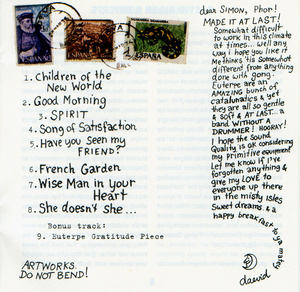 ESPAÑA
ESPAÑA
ESPAÑA
1. Children of the
New World
2. Good Morning
3. SPIRIT
4. Song of Satisfaction
5. Have you Seen my
FRIEND?
6. French Garden
7. Wise Man in your
Heart
8. She doesn't she...
Bonus track:
9. Euterpe Gratitude Piece
ARTWORKS.
DO NOT BEND!
dear SIMON, Phor!
MADE IT AT LAST!
Somewhat difficult
to work in this climate
at times... Well any
way I hope you like it
Me thinks 'tis Somewhat
different from anything
done with gong.
Euterpe are an
AMAZING bunch of
catalunadics & yet
they are all so gentle
& Soft & AT LAST... a
band WITHOUT A
DRUMMER! HOORAY!
I hope the Sound
Quality is ok considering
my primitive equipment
Let me know if I've
forgotten anything &
give my LOVE to
everyone up there
in the misty isles
Sweet dreams & a
happy breakfast to go
daevid